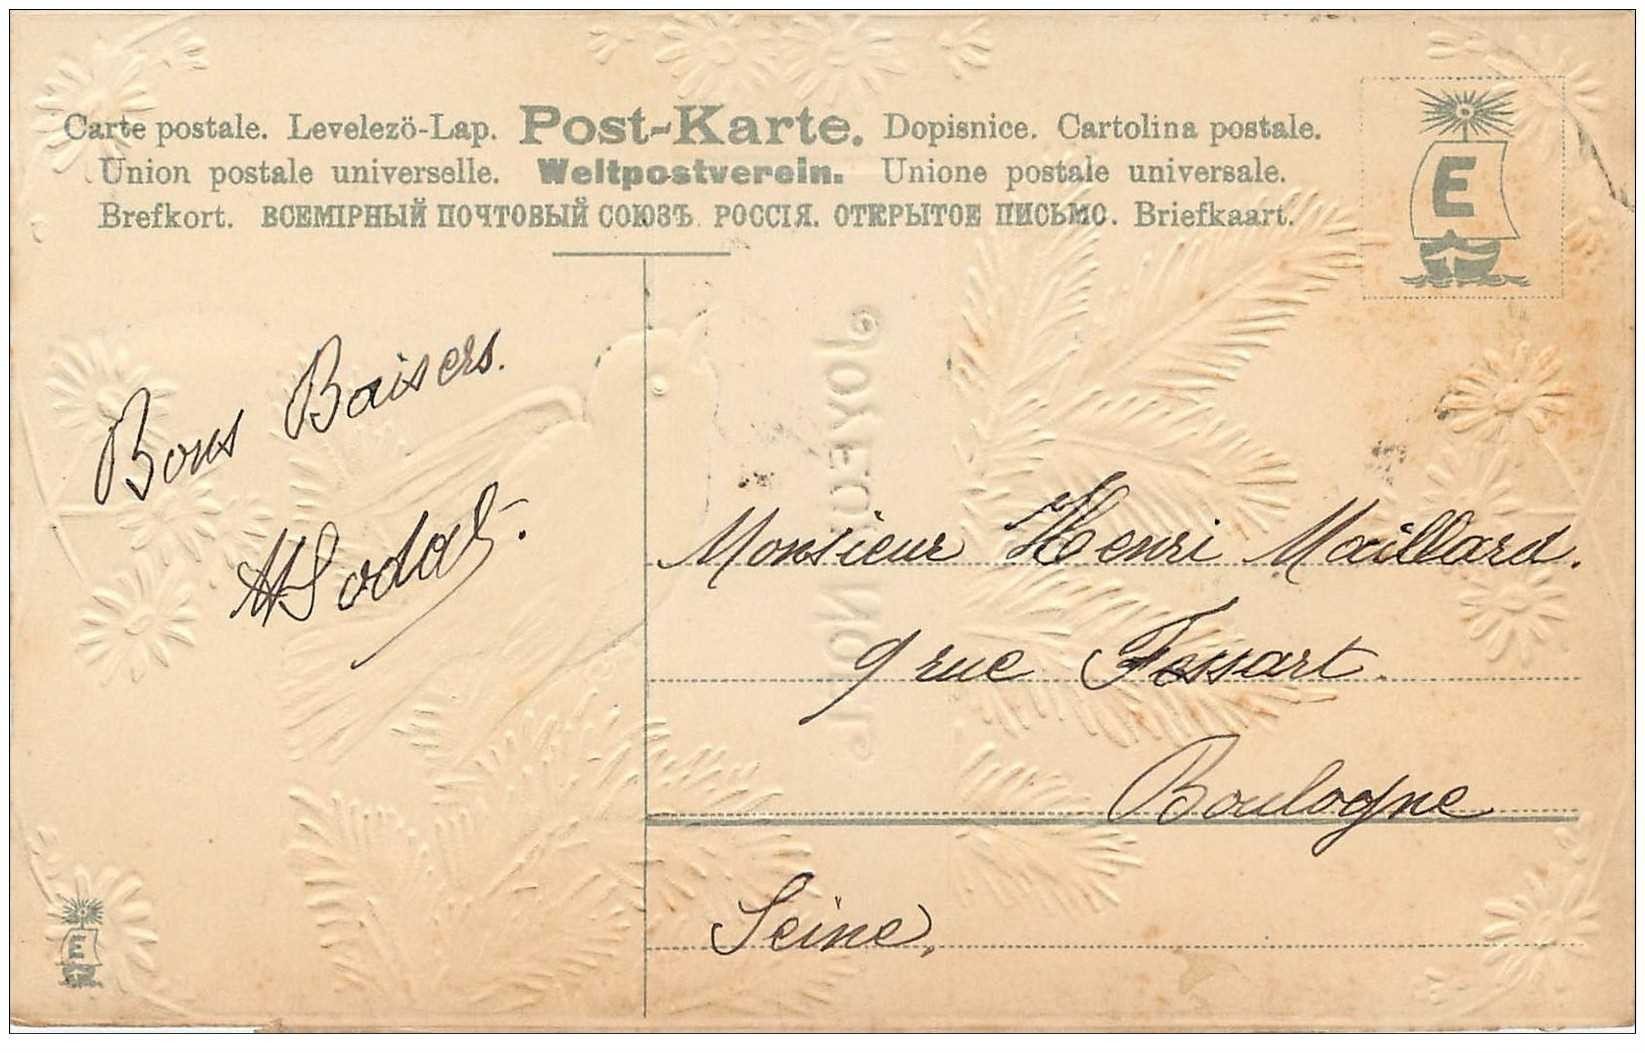 Carte postale. Levelezö-Lap. Post-Karte. Dopisnice. Cartolina postale.
Union postale universelle. Weltpostverein. Unione postale universale.
Brefkort. ВСЕМІРНЫЙ ПОЧТОВЫЙ СОЮЗЪ. РОССІЯ. ОТКРЫТОЕ ПИСЬМО. Briefkaart.
E
Bons Baisers.
Monsieur Henri Maillard.
9 rue Fessart.
Boulogne
Seine.
E